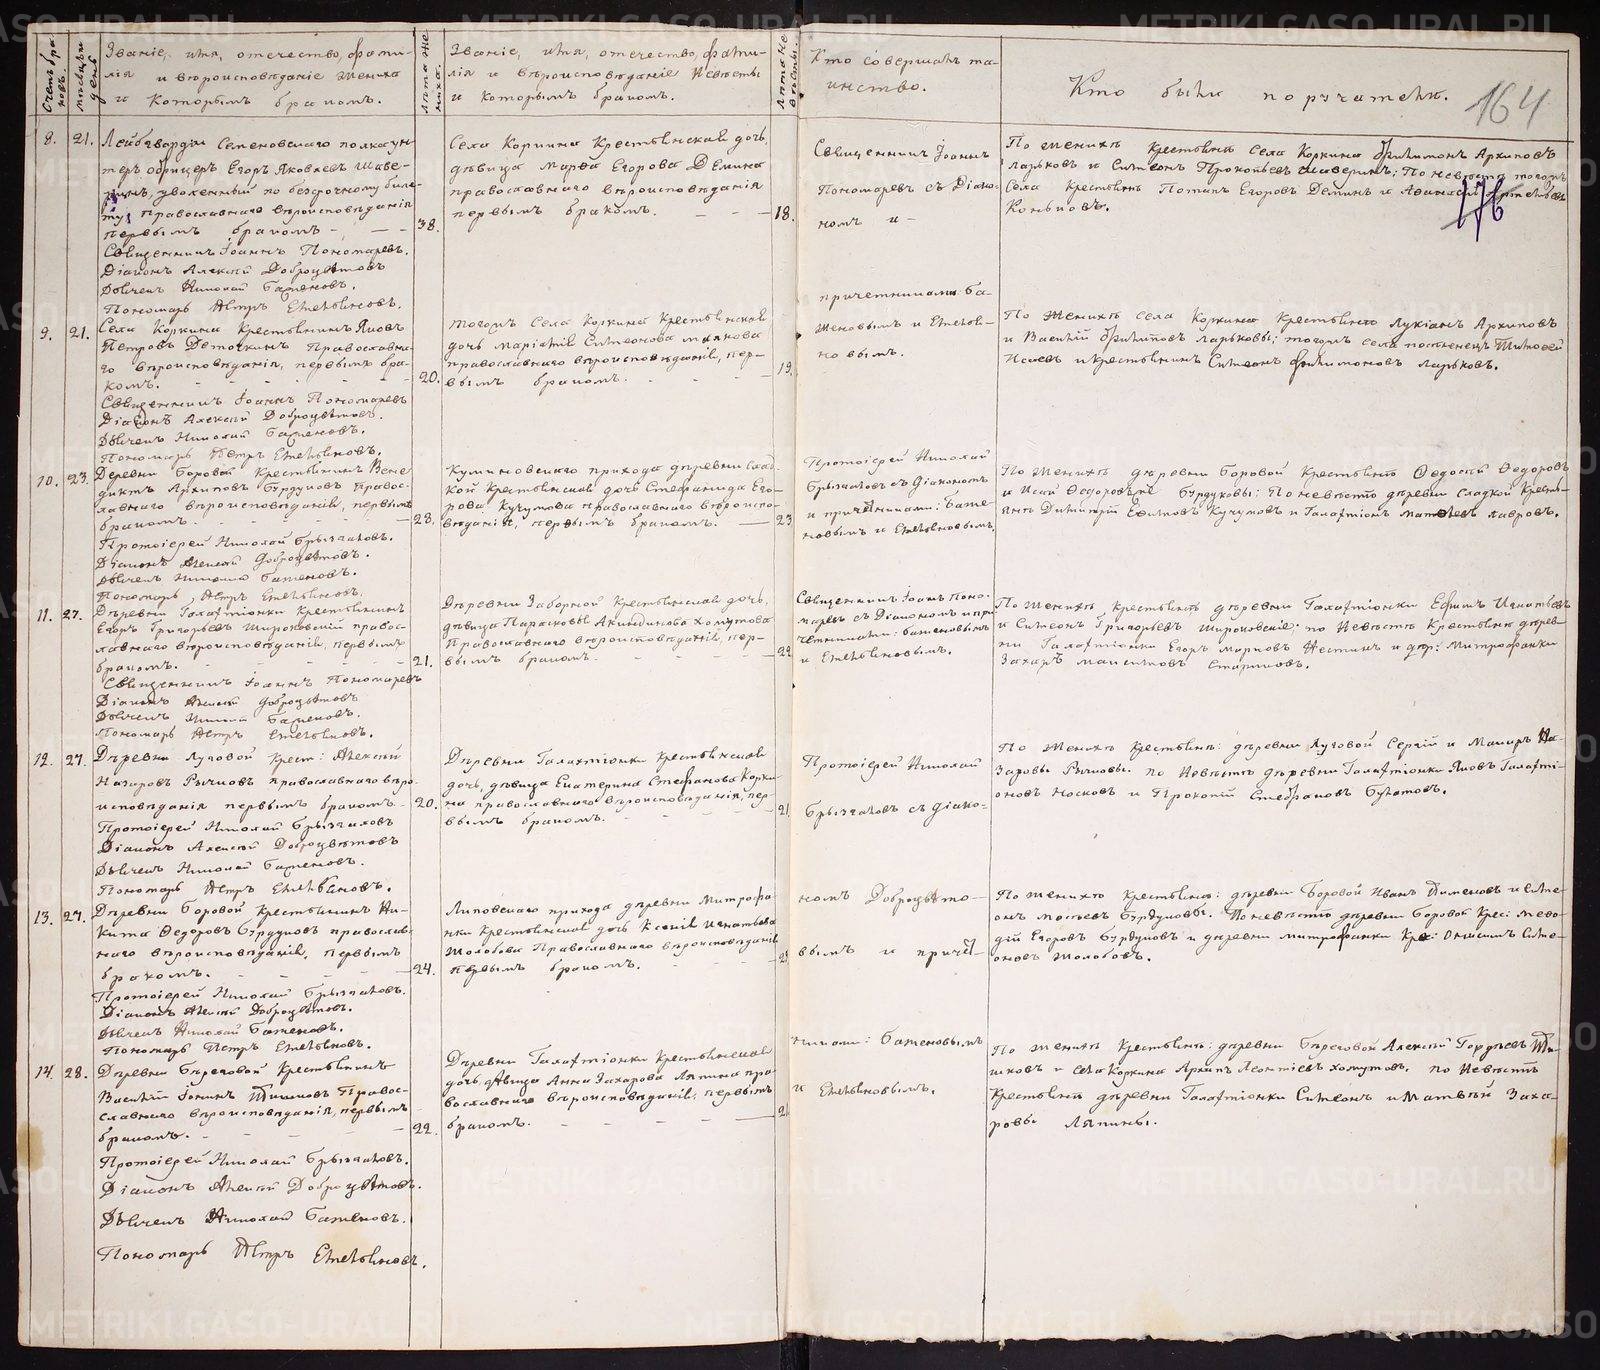 Счетъ бра-
ковъ.
Мѣсяцъ и
день
Званіе, имя, отечество, фами-
лія и вѣроисповѣданіе жениха
и которымъ бракомъ.
Лѣта же-
ниха.
Званіе, имя, отечество, фами-
лія и вѣроисповѣданіе невѣсты
и которымъ бракомъ.
Лѣта не-
вѣсты.
Кто совершалъ та-
инство.
Кто были поручатели.
164
176
8.
21.
Лейбгвардіи Семеновскаго полка ун-
теръ офицеръ Егоръ Яковлевъ Шаве-
ринъ, уволенный по безсрочному биле-
ту, православнаго вѣроисповѣданія
первымъ бракомъ
Священникъ Іоаннъ Пономаревъ.
Діаконъ Алексѣй Доброцвѣтовъ
Дьячекъ Николай Баженовъ.
Пономарь Петръ Емельяновъ.
38.
Села Коркина Крестьянская дочь,
дѣвица Марѳа Егорова Демина
православнаго вѣроисповѣданія
первымъ бракомъ.
18.
Священникъ Іоаннъ
Пономаревъ съ Діако-
номъ и
По женихѣ Крестьяне села Коркина Филимонъ Архиповъ
Ларьковъ и Симеонъ Прокопьевъ Шаверинъ; По невѣстѣ тогожъ
села Крестьяне Потапъ Егоровъ Деминъ и Аѳанасій Артемьевъ
Коньковъ.
9.
21.
Села Коркина Крестьянинъ Яковъ
Петровъ Деточкинъ Православна-
го вѣроисповѣданія, первымъ бра-
комъ.
Священникъ Іоаннъ Пономаревъ
Діаконъ Алексѣй Доброцвѣтовъ.
Дьячекъ Николай Баженовъ.
Пономарь Петръ Емельяновъ.
20.
Тогожъ села Коркина Крестьянская
дочь Марія Симеонова
православнаго вѣроисповѣданія, пер-
вымъ бракомъ.
19.
причетниками Ба-
женовымъ и Емелья-
новымъ.
По Женихѣ села Коркина Крестьяне Лукіанъ Архиповъ
и Василій Филиповъ Ларьковы; тогожъ села поселенецъ Тимоѳей
Исаевъ и крестьянинъ Симеонъ Филимоновъ Ларьковъ.
10.
23.
Деревни Боровой Крестьянинъ Вене-
диктъ Архиповъ Бурдуковъ Правос-
лавнаго вѣроисповѣданія, первымъ
бракомъ.
Протоіерей Николай Брызгаловъ.
Діаконъ Алексѣй Доброцвѣтовъ.
Дьячекъ Николай Баженовъ.
Пономарь, Петръ Емельяновъ.
28.
Кулиновскаго прихода деревни Слад-
кой Крестьянская дочь Стефанида Его-
рова Кучумова Православнаго вѣроиспо-
вѣданія, первымъ бракомъ.
23
Протоіерей Николай
Брызгаловъ съ Діакономъ
и причетниками: Баже-
новымъ и Емельяновымъ
По Женихѣ деревни Боровой Крестьяне Ѳедосій Ѳедоровъ
и Исай Ѳедоровъ же Бурдуковы: По невѣстѣ деревни Сладкой Кресть-
яне Димитрій Ефимовъ Кучумовъ и Галактіонъ Матвеевъ Лавровъ.
11.
27.
Деревни Галактіонки Крестьянинъ
Егоръ Григорьевъ Широковскій правос-
лавнаго вѣроисповѣданія, первымъ
бракомъ.
Священникъ Іоаннъ Пономаревъ
Діаконъ Алексѣй Доброцвѣтовъ
Дьячекъ Николай Баженовъ.
Пономарь Петръ Емельяновъ.
21.
Деревни Заборной Крестьянская дочь,
дѣвица Параскева Акиндинова Хомутова
Православнаго вѣроисповѣданія, пер-
вымъ бракомъ.
22
Священникъ Іоаннъ Поно-
маревъ съ Діакономъ и при-
четниками: Баженовымъ
и Емельяновымъ.
По Женихѣ Крестьяне деревни Галактіонки Ефимъ Игнатьевъ
и Симеонъ Григорьевъ Широковскіе; по Невѣстѣ Крестьяне дерев-
ни Галактіонки Егоръ Марковъ Нестинъ и дер: Митрофанки
Захаръ Максимовъ Стариковъ.
12.
27.
Деревни Луговой Крест: Алексѣй
Назаровъ Рычковъ православнаго вѣро-
исповѣданія первымъ бракомъ
Протоіерей Николай Брызгаловъ
Діаконъ Алексѣй Доброцвѣтовъ
Дьячекъ Николай Баженовъ.
Пономарь Петръ Емельяновъ.
20.
Деревни Галактіонки Крестьянская
дочь, дѣвица Екатерина Стефанова Корки-
на православнаго вѣроисповѣданія, пер-
вымъ бракомъ.
21.
Протоіерей Николай
Брызгаловъ съ Діако-
По Женихѣ Крестьяне: деревни Луговой Сергій и Макаръ На-
заровы Рычковы. По Невѣстѣ деревни Галактіонки Яковъ Галакті-
оновъ Носковъ и Прокопій Стефановъ Булатовъ.
13.
27.
Деревни Боровой Крестьянинъ Ни-
кита Ѳедоровъ Бурдуковъ православ-
наго вѣроисповѣданія, первымъ
бракомъ.
Протоіерей Николай Брызгаловъ.
Діаконъ Алексѣй Доброцвѣтовъ.
Дьячекъ Николай Баженовъ.
Пономарь Петръ Емельяновъ.
24.
Липовскаго прихода деревни Митрофа-
нки Крестьянская дочь Ксенія Игнатьева
Молобова Православнаго вѣроисповѣданія
первымъ бракомъ.
номъ Доброцвѣто-
вымъ и причет-
По Женихѣ Крестьяне: деревни Боровой Иванъ Пименовъ и Симе-
онъ Мосеевъ Бурдуковы. По невѣстѣ деревни Боровой Крес: Меѳо-
дій Егоровъ Бурдуковъ и деревни Митрофанки Кре: Онисимъ Симе-
оновъ Молобовъ.
14.
28.
Деревни Береговой Крестьянинъ
Василій Іонинъ Тишковъ Правос-
славнаго вѣроисповѣданія, первымъ
бракомъ.
Протоіерей Николай Брызгаловъ.
Діаконъ Алексѣй Доброцвѣтовъ.
Дьячекъ Николай Баженовъ.
Пономарь Петръ Емельяновъ.
22.
Деревни Галактіонки Крестьянская
дочь, дѣвица Анна Захарова Ляпина пра-
вославнаго вѣроисповѣданія, первымъ
бракомъ.
21
никами: Баженовымъ
и Емельяновымъ.
По Женихѣ Крестьяне: деревни Береговой Алексѣй Гордѣевъ Ти-
шковъ и села Коркина Архипъ Леонтіевъ Хомутовъ. по Невѣстѣ
Крестьяне деревни Галактіонки Симеонъ и Матвѣй Заха-
ровы Ляпины.
METRIKI.GASO-URAL.RU